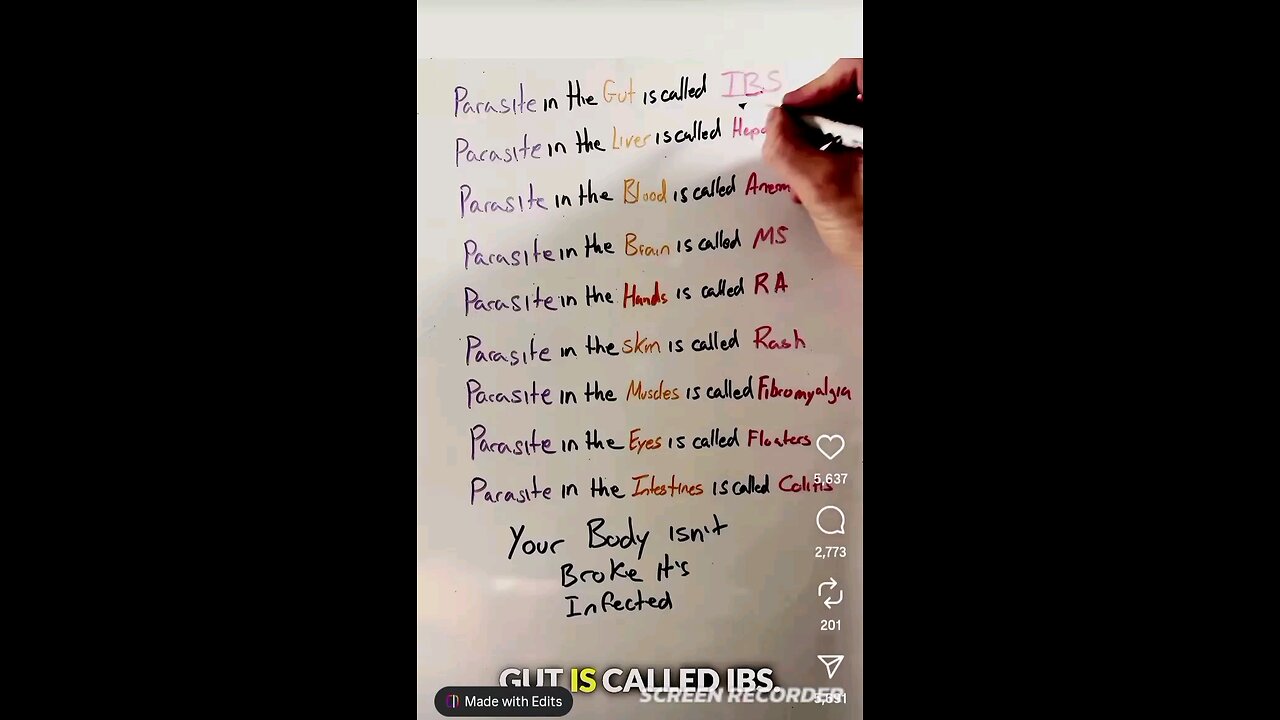 Parasite in the Gut is called IBS
Parasite in the Liver is called
Parasite in the Blood is called
Parasite in the Brain is called MS
Parasite in the Hands is called RA
Parasite in the Skin is called Rash
Parasite in the Muscles is called Fibromyalgia
Parasite in the Eyes is called Floaters
Parasite in the Intestines is called Colitis
Your Body isn't
Broke It's
Infected
5,637
2,773
201
GUT IS CALLED IBS.
Made with Edits
SCREEN RECORDER